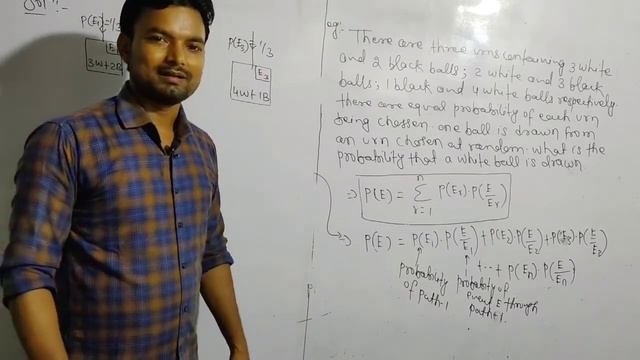 Sol⁷ :-
P(E₁)=1/3
E₁
3W+2B
P(E₃)=1/3
E₃
4W+1B
eg:- There are three urns containing 3 white
and 2 black balls; 2 white and 3 black
balls; 1 black and 4 white balls respectively.
there are equal probability of each urn
being chossen. one ball is drawn from
an urn chosen at random. what is the
probability that a white ball is drawn.
⇒ P(E) = n Σ r=1 P(Er)·P(E/Er)
⇒ P(E) = P(E₁)·P(E/E₁)+P(E₂)·P(E/E₂)+P(E₃)·P(E/E₃)
+···+ P(En)·P(E/En)
probability
of path-1
probability of
event E through
path-1.